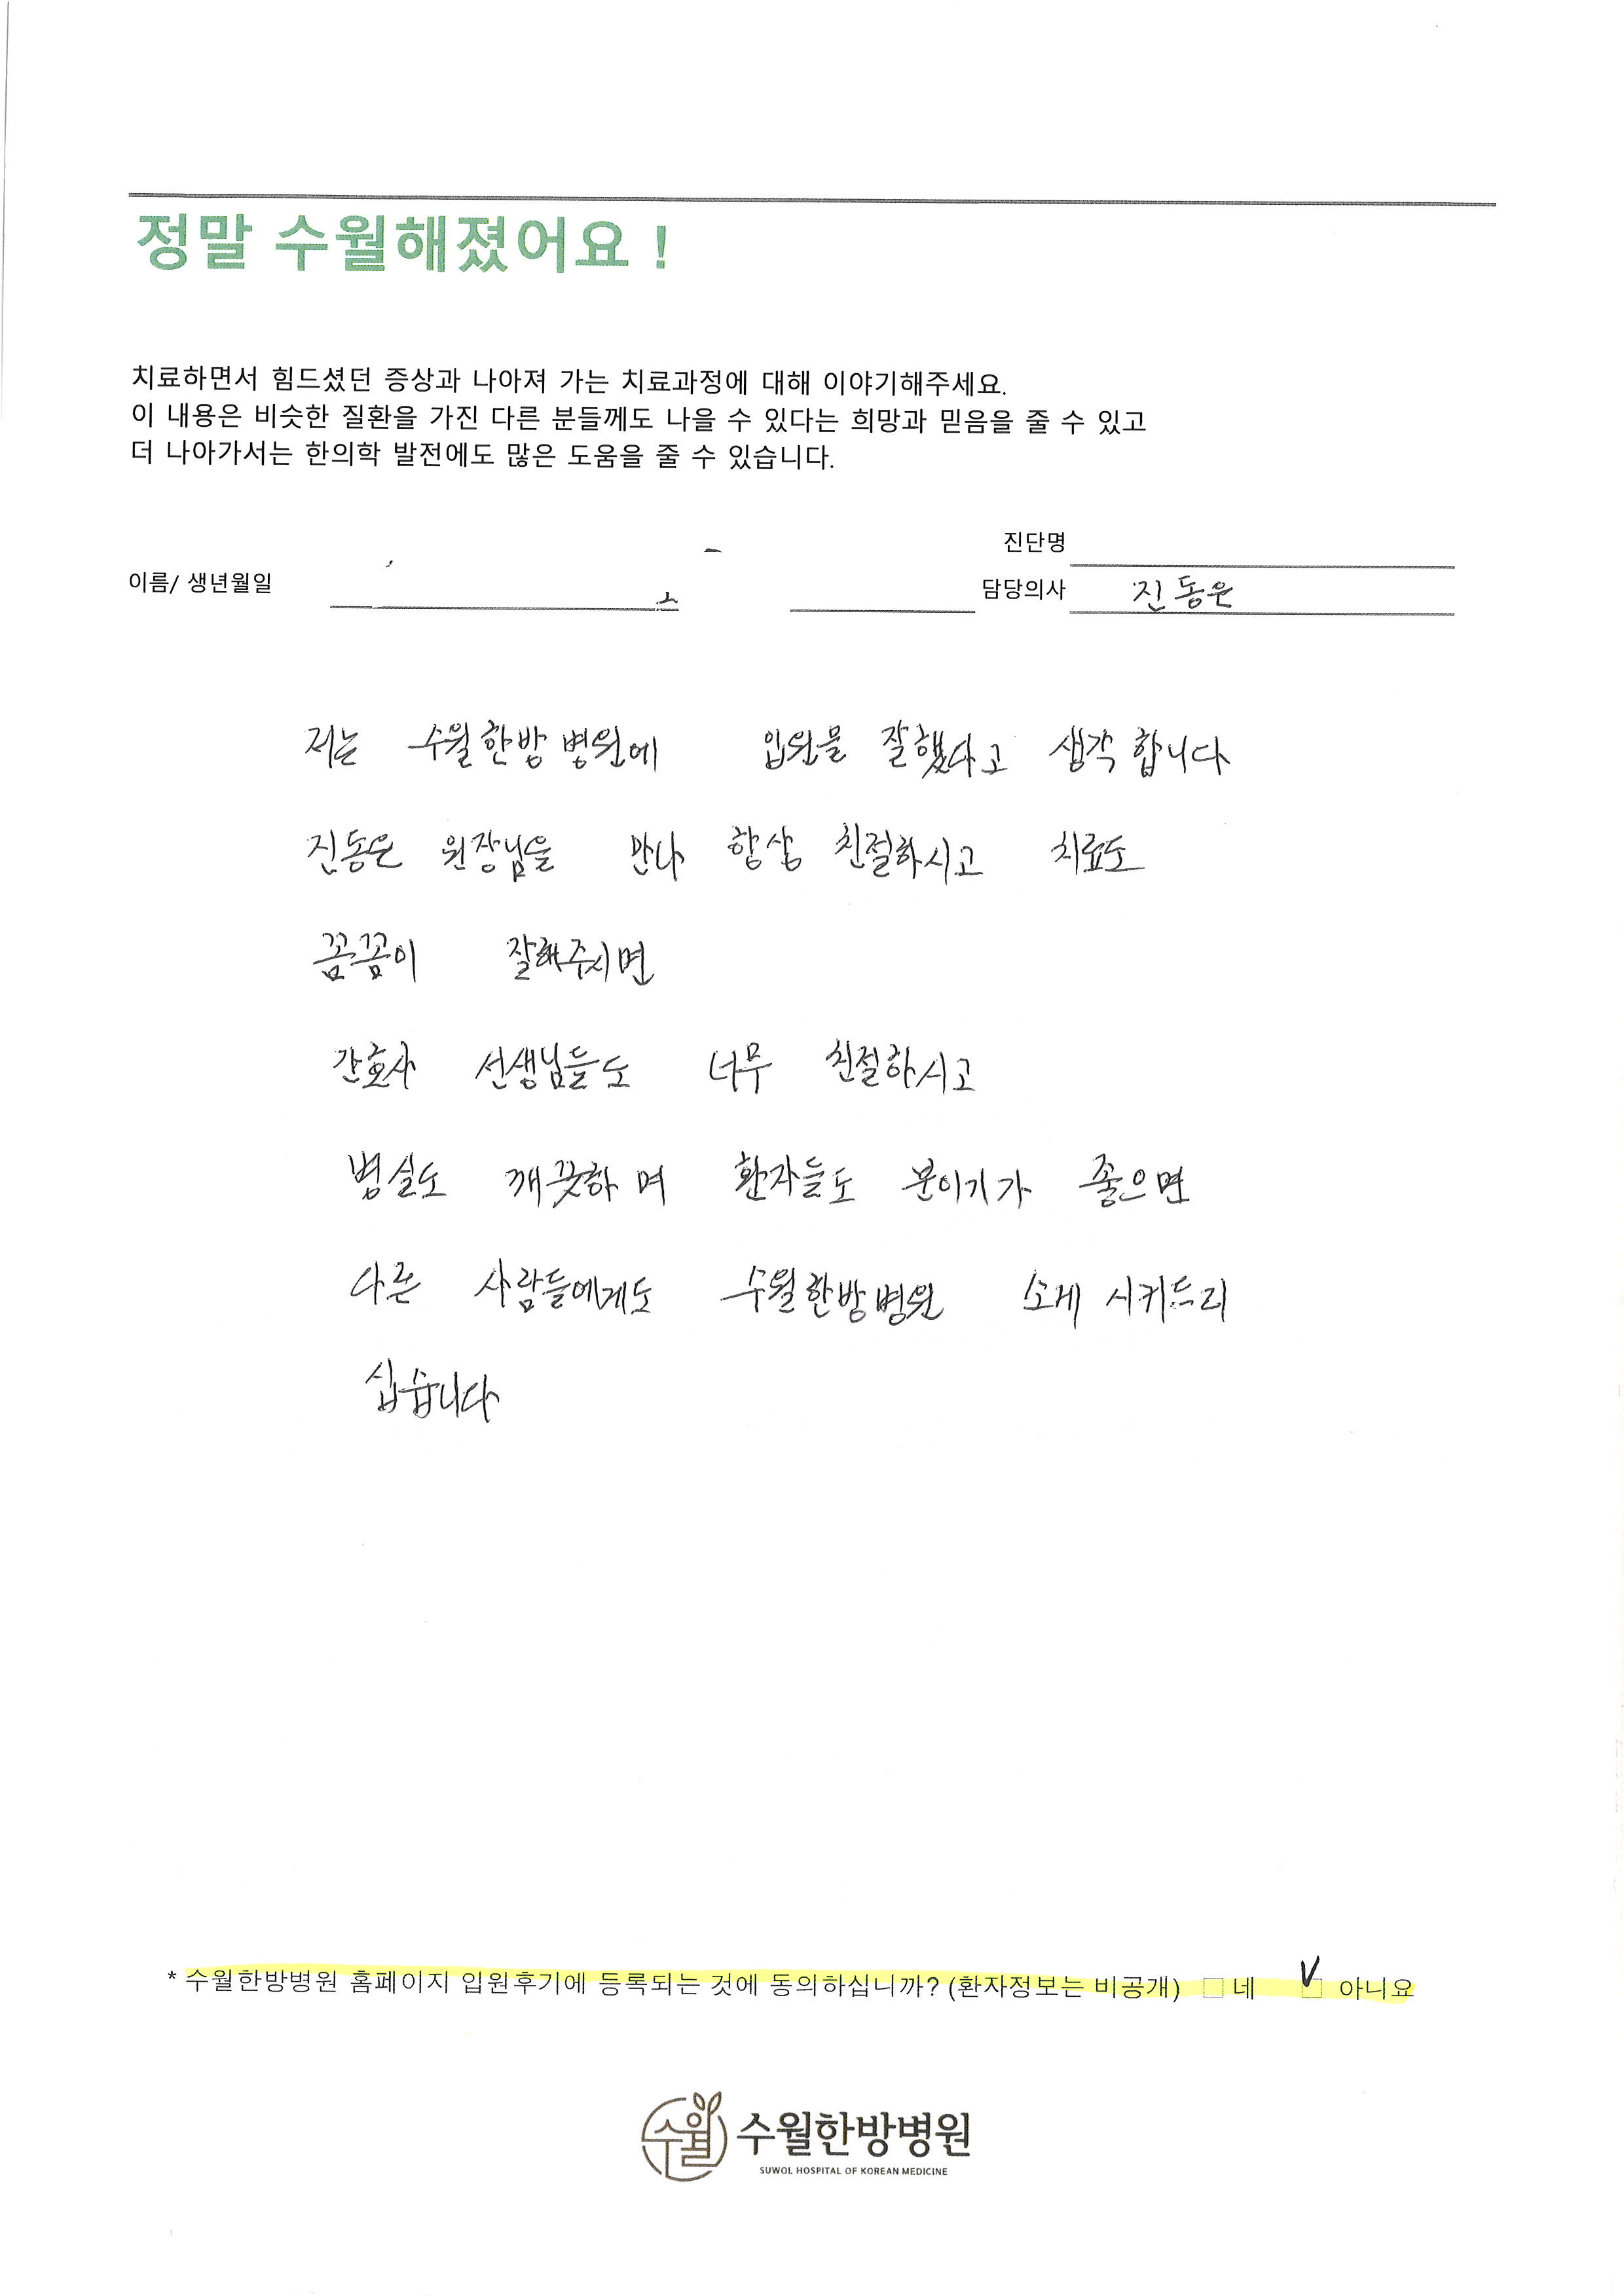 정말 수월해졌어요 !
치료하면서 힘드셨던 증상과 나아져 가는 치료과정에 대해 이야기해주세요.
이 내용은 비슷한 질환을 가진 다른 분들께도 나을 수 있다는 희망과 믿음을 줄 수 있고
더 나아가서는 한의학 발전에도 많은 도움을 줄 수 있습니다.
진단명
이름/ 생년월일
담당의사 진동은
저는 수월한방병원에 입원을 잘했다고 생각합니다
진동은 원장님을 만나 항상 친절하시고 치료도
꼼꼼이 잘해주시면
간호사 선생님들도 너무 친절하시고
병실도 깨끗하며 환자들도 분이기가 좋으면
다른 사람들에게도 수월한방병원 소게 시켜드리
십습니다
* 수월한방병원 홈페이지 입원후기에 등록되는 것에 동의하십니까? (환자정보는 비공개) □ 네 ☑ 아니요
수월 수월한방병원
SUWOL HOSPITAL OF KOREAN MEDICINE